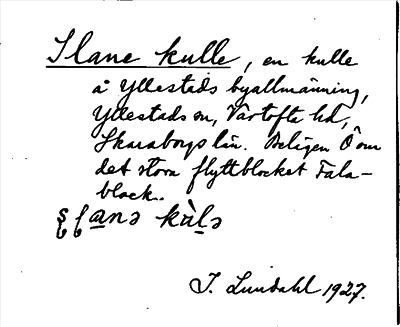 Slane kulle, en kulle
å Yllestads byallmänning,
Yllestads sn, Vartofta hd,
Skaraborgs län. Beligen Ö om
det stora flyttblocket Fala-
block.
J. Lundahl 1927.